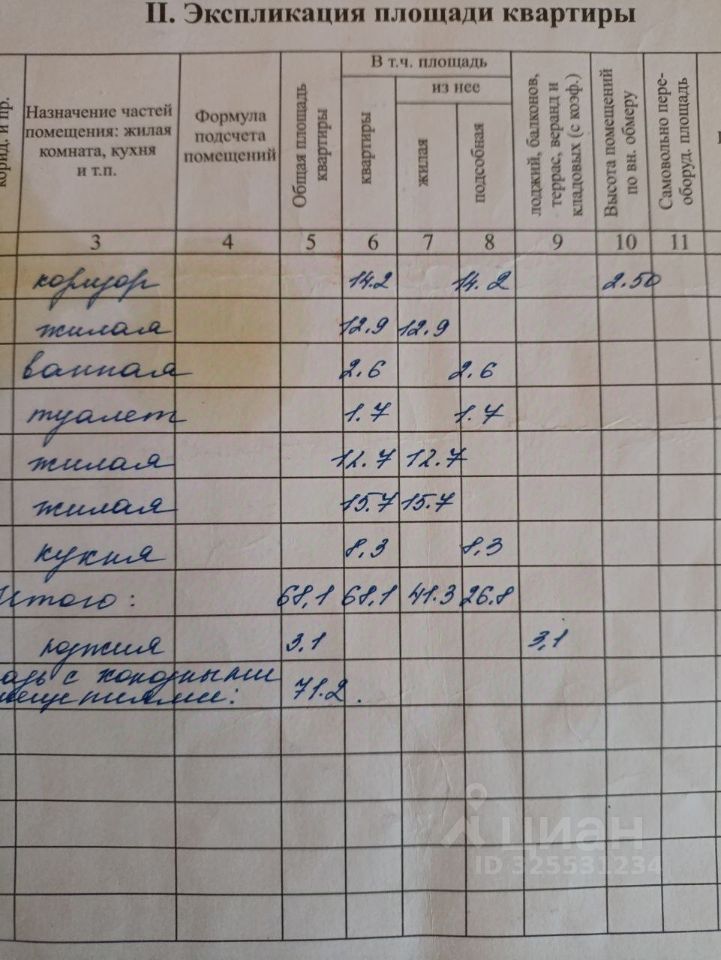 II. Экспликация площади квартиры
корид. и пр.
Назначение частей
помещения: жилая
комната, кухня
и т.п.
Формула
подсчета
помещений
Общая площадь
квартиры
В т.ч. площадь
квартиры
из нее
жилая
подсобная
лоджий, балконов,
террас, веранд и
кладовых (с коэф.)
Высота помещений
по вн. обмеру
Самовольно пере-
оборуд. площадь
3 4 5 6 7 8 9 10 11
коридор 14.2 14.2 2.50
жилая 12.9 12.9
ванная 2.6 2.6
туалет 1.7 1.7
жилая 12.7 12.7
жилая 15.7 15.7
кухня 8,3 8,3
Итого: 68,1 68,1 41.3 26.8
лоджия 3,1 3,1
адь с холодными
мещениями: 71.2.
циан
ID 325531234